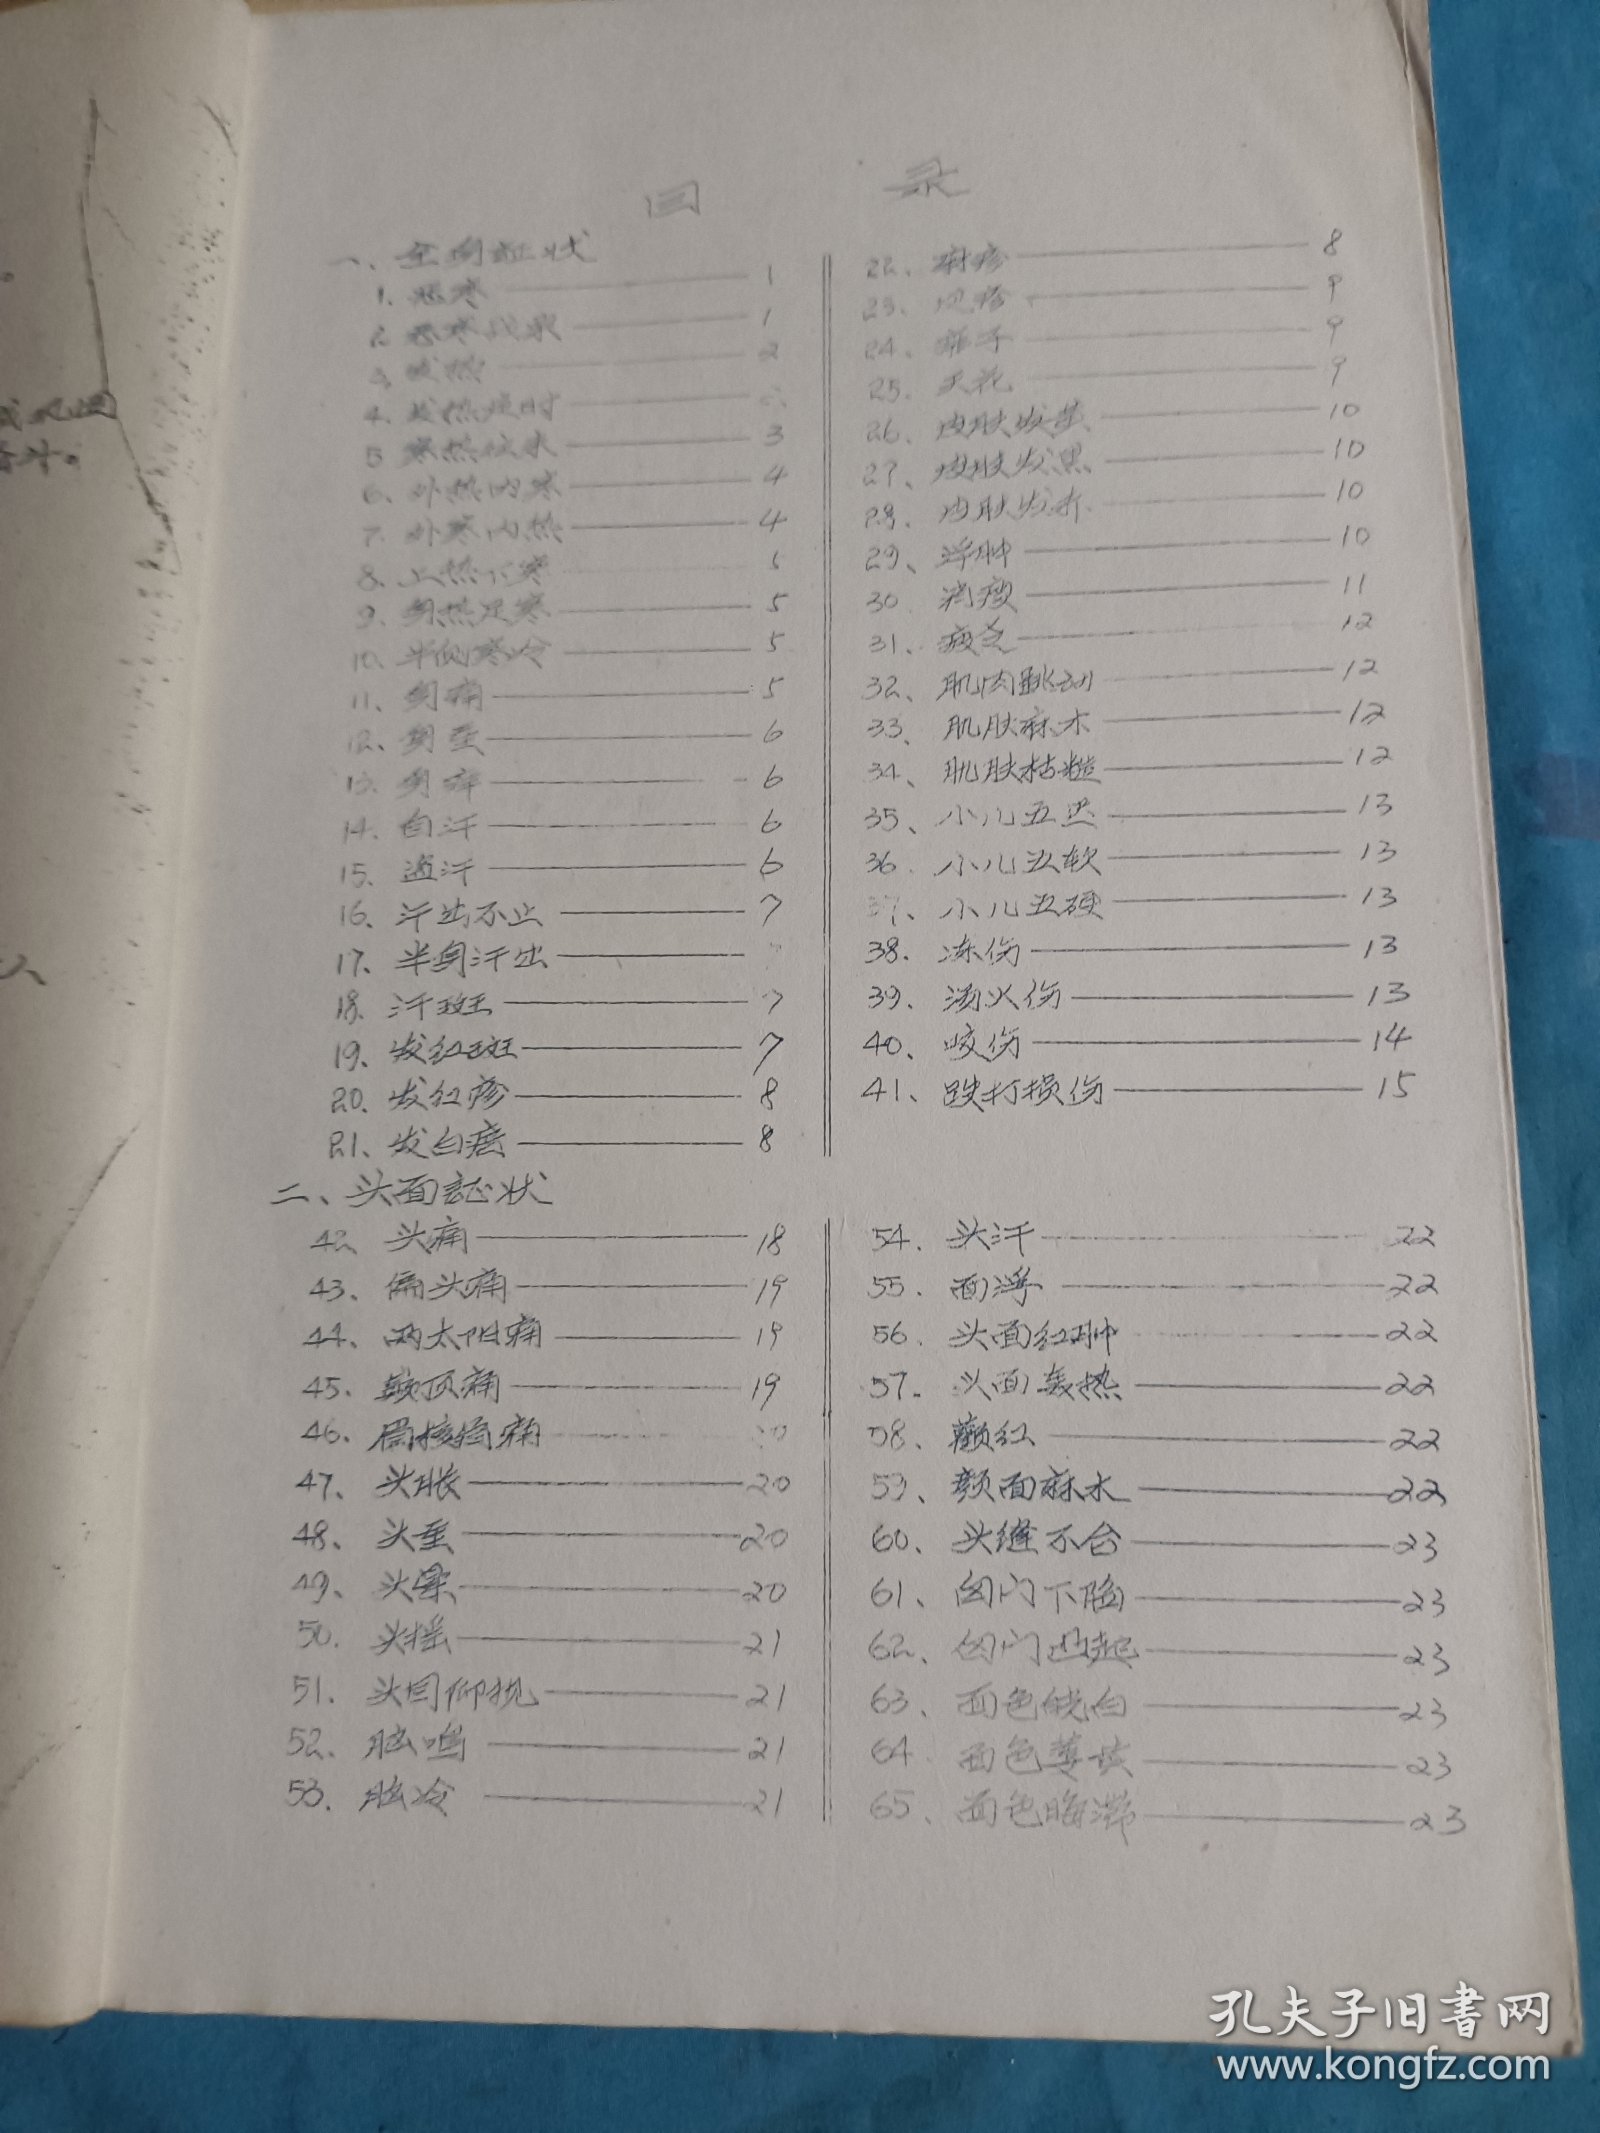 目 录
一、全身症状
1. 恶寒 1
2. 恶寒战栗 1
3. 发热 2
4. 发热定时
5. 寒热往来 3
6. 外热内寒 4
7. 外寒内热 4
8. 上热下寒 5
9. 身热足寒 5
10. 半侧寒冷 5
11、身痛 5
12、身重 6
13、身痒 6
14、自汗 6
15、盗汗 6
16、汗出不止 7
17、半身汗出
18、汗斑 7
19、发红斑 7
20、发红疹 8
21、发白㾦 8
22、麻疹 8
23、风疹 9
24、痱子 9
25、天花 9
26、皮肤发黄 10
27、皮肤发黑 10
28、皮肤发 10
29、浮肿 10
30. 消瘦 11
31、疲乏 12
32、肌肉跳动 12
33、肌肤麻木 12
34、肌肤枯糙 12
35、小儿五迟 13
36. 小儿五软 13
37、小儿五硬 13
38、冻伤 13
39、汤火伤 13
40、咬伤 14
41、跌打损伤 15
二、头面証状
42、头痛 18
43、偏头痛 19
44、两太阳痛 19
45、巅顶痛 19
46、眉棱骨痛 20
47、头胀 20
48、头重 20
49、头晕 20
50. 头摇 21
51. 头目仰视 21
52、脑鸣 21
53. 脑冷 21
54. 头汗 22
55. 面浮 22
56. 头面红肿 22
57. 头面轰热 22
58、颧红 22
59、颜面麻木 22
60、头缝不合 23
61、囟门下陷 23
62、囟门凸起 23
63、面色㿠白 23
64. 面色萎黄 23
65、面色晦滞 23
孔夫子旧书网
www.kongfz.com